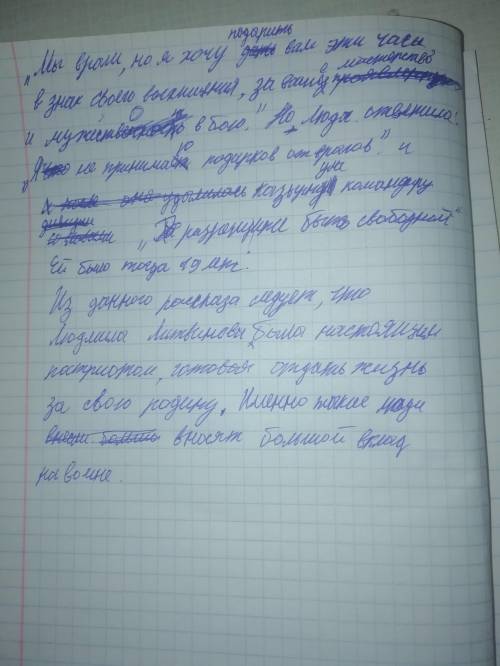 подарить
„Мы враги, но я хочу вам эти часы
в знак своего восхищения, за ваше мастерство
и мужество в бою." Но Люда ответила:
„Я не принимаю подарков от врагов." и
она удалилась козырнув командиру
дивизии „Разрешите быть свободной"
Ей было тогда 19 лет.
Из данного рассказа следует, что
Людмила Литвинова была настоящим
патриотом, готовая отдать жизнь
за свою родину. Именно такие люди
вносят большой вклад
на войне.